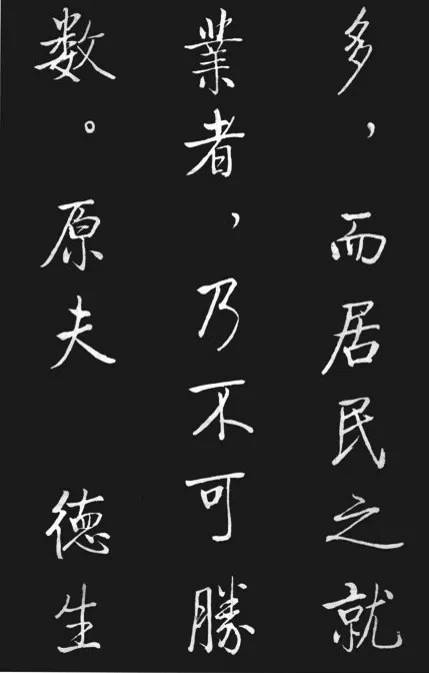 多，而居民之就
業者，乃不可勝
数。原夫　德生